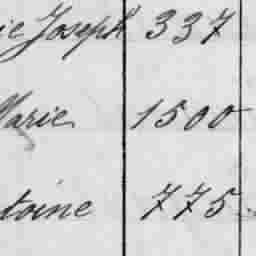 ie Joseph 337
Marie 1500
toine 775